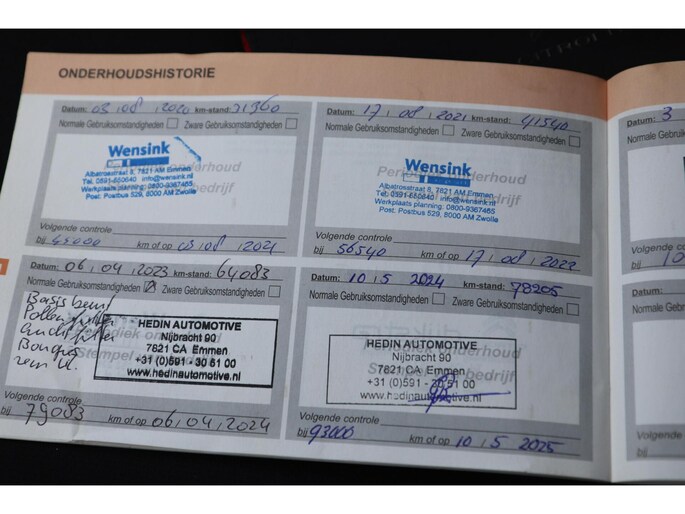 ONDERHOUDSHISTORIE
Datum: 03 | 08 | 2020 km-stand: 31360
Normale Gebruiksomstandigheden Zware Gebruiksomstandigheden
Wensink
Albatrosstraat 8, 7821 AM Emmen
Tel. 0591-650640 info@wensink.nl
Werkplaatsplanning: 0800-9367465
Post: Postbus 529, 8000 AM Zwolle
Volgende controle
bij 45000 km of op 03 | 08 | 2021
Datum: 17 | 08 | 2021 km-stand: 41540
Normale Gebruiksomstandigheden Zware Gebruiksomstandigheden
Wensink
Albatrosstraat 8, 7821 AM Emmen
Tel. 0591-650640 info@wensink.nl
Werkplaats planning: 0800-9367465
Post: Postbus 529, 8000 AM Zwolle
Volgende controle
bij 56540 km of op 17 | 08 | 2022
Datum: 06 | 04 | 2023 km-stand: 64083
Normale Gebruiksomstandigheden Zware Gebruiksomstandigheden
Basis beurt
Pollenfilter
Luchtfilter
HEDIN AUTOMOTIVE
Nijbracht 90
7821 CA Emmen
+31 (0)591 - 30 51 00
www.hedinautomotive.nl
Volgende controle
bij 79083 km of op 06 | 04 | 2024
Datum: 10 | 5 | 2024 km-stand: 78205
Normale Gebruiksomstandigheden Zware Gebruiksomstandigheden
HEDIN AUTOMOTIVE
Nijbracht 90
7821 CA Emmen
+31 (0)591 - 30 51 00
www.hedinautomotive.nl
Volgende controle
bij 93000 km of op 10 | 5 | 2025
Datum: 3
Normale
Volgende
bij 10
Datum:
Normale G
Volgende
bij